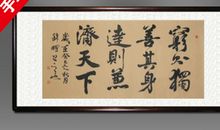 窮則獨
善其身
達則兼
濟天下